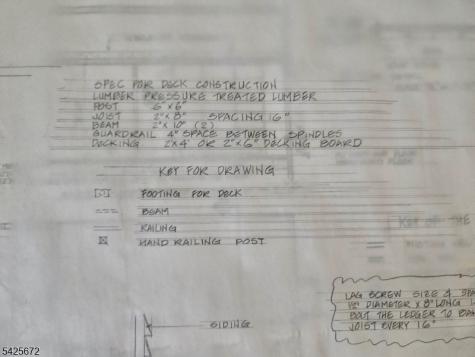 SPEC FOR DECK CONSTRUCTION
LUMBER PRESSURE TREATED LUMBER
POST 6"X6"
JOIST 2"X8" SPACING 16"
BEAM 2"X10" (2)
GUARDRAIL 4" SPACE BETWEEN SPINDLES
DECKING 2X4" OR 2"X6" DECKING BOARD
KEY FOR DRAWING
FOOTING FOR DECK
BEAM
RAILING
HAND RAILING POST
KEY OF THE
LAG SCREW SIZE &
DIAMETER X 8" LONG
BOLT THE LEDGER TO
JOIST EVERY 16"
SIDING
5425672